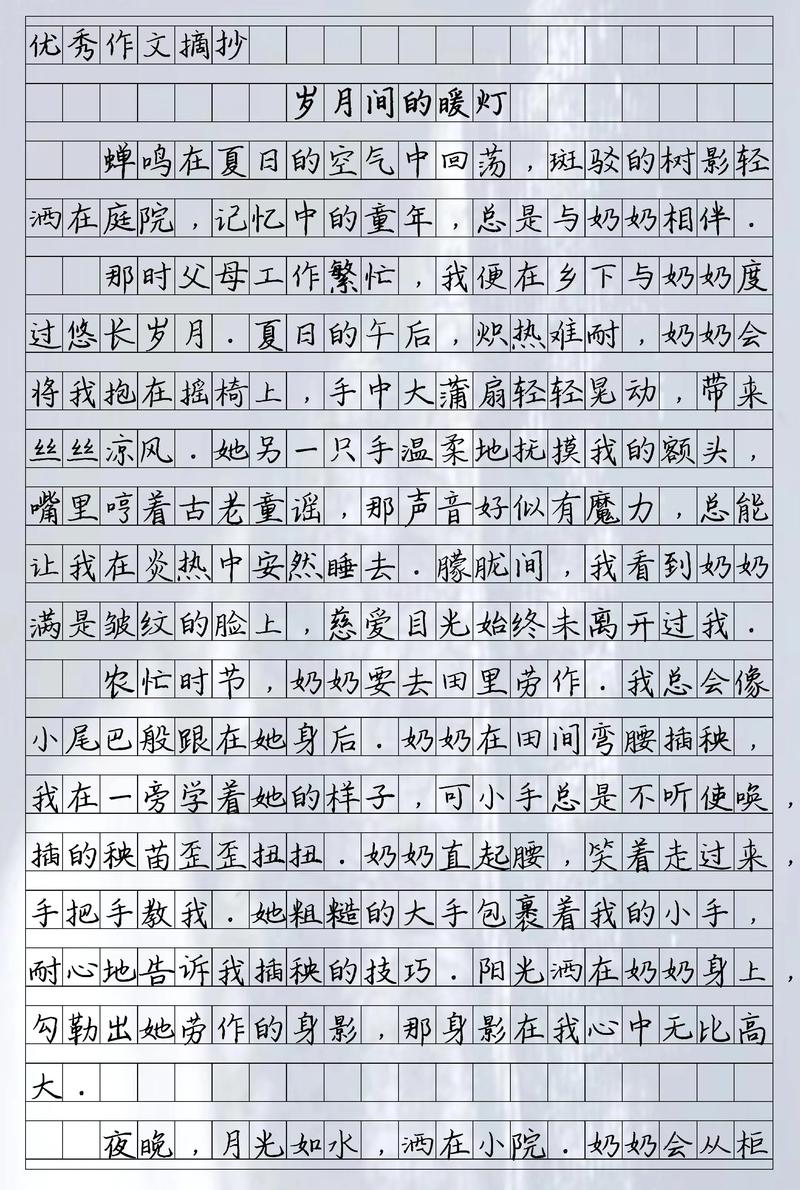 优秀作文摘抄
岁月间的暖灯
蝉鸣在夏日的空气中回荡，斑驳的树影轻
洒在庭院，记忆中的童年，总是与奶奶相伴．
那时父母工作繁忙，我便在乡下与奶奶度
过悠长岁月．夏日的午后，炽热难耐，奶奶会
将我抱在摇椅上，手中大蒲扇轻轻晃动，带来
丝丝凉风．她另一只手温柔地抚摸我的额头，
嘴里哼着古老童谣，那声音好似有魔力，总能
让我在炎热中安然睡去．朦胧间，我看到奶奶
满是皱纹的脸上，慈爱目光始终未离开过我．
农忙时节，奶奶要去田里劳作．我总会像
小尾巴般跟在她身后．奶奶在田间弯腰插秧，
我在一旁学着她的样子，可小手总是不听使唤，
插的秧苗歪歪扭扭．奶奶直起腰，笑着走过来，
手把手教我．她粗糙的大手包裹着我的小手，
耐心地告诉我插秧的技巧．阳光洒在奶奶身上，
勾勒出她劳作的身影，那身影在我心中无比高
大．
夜晚，月光如水，洒在小院．奶奶会从柜